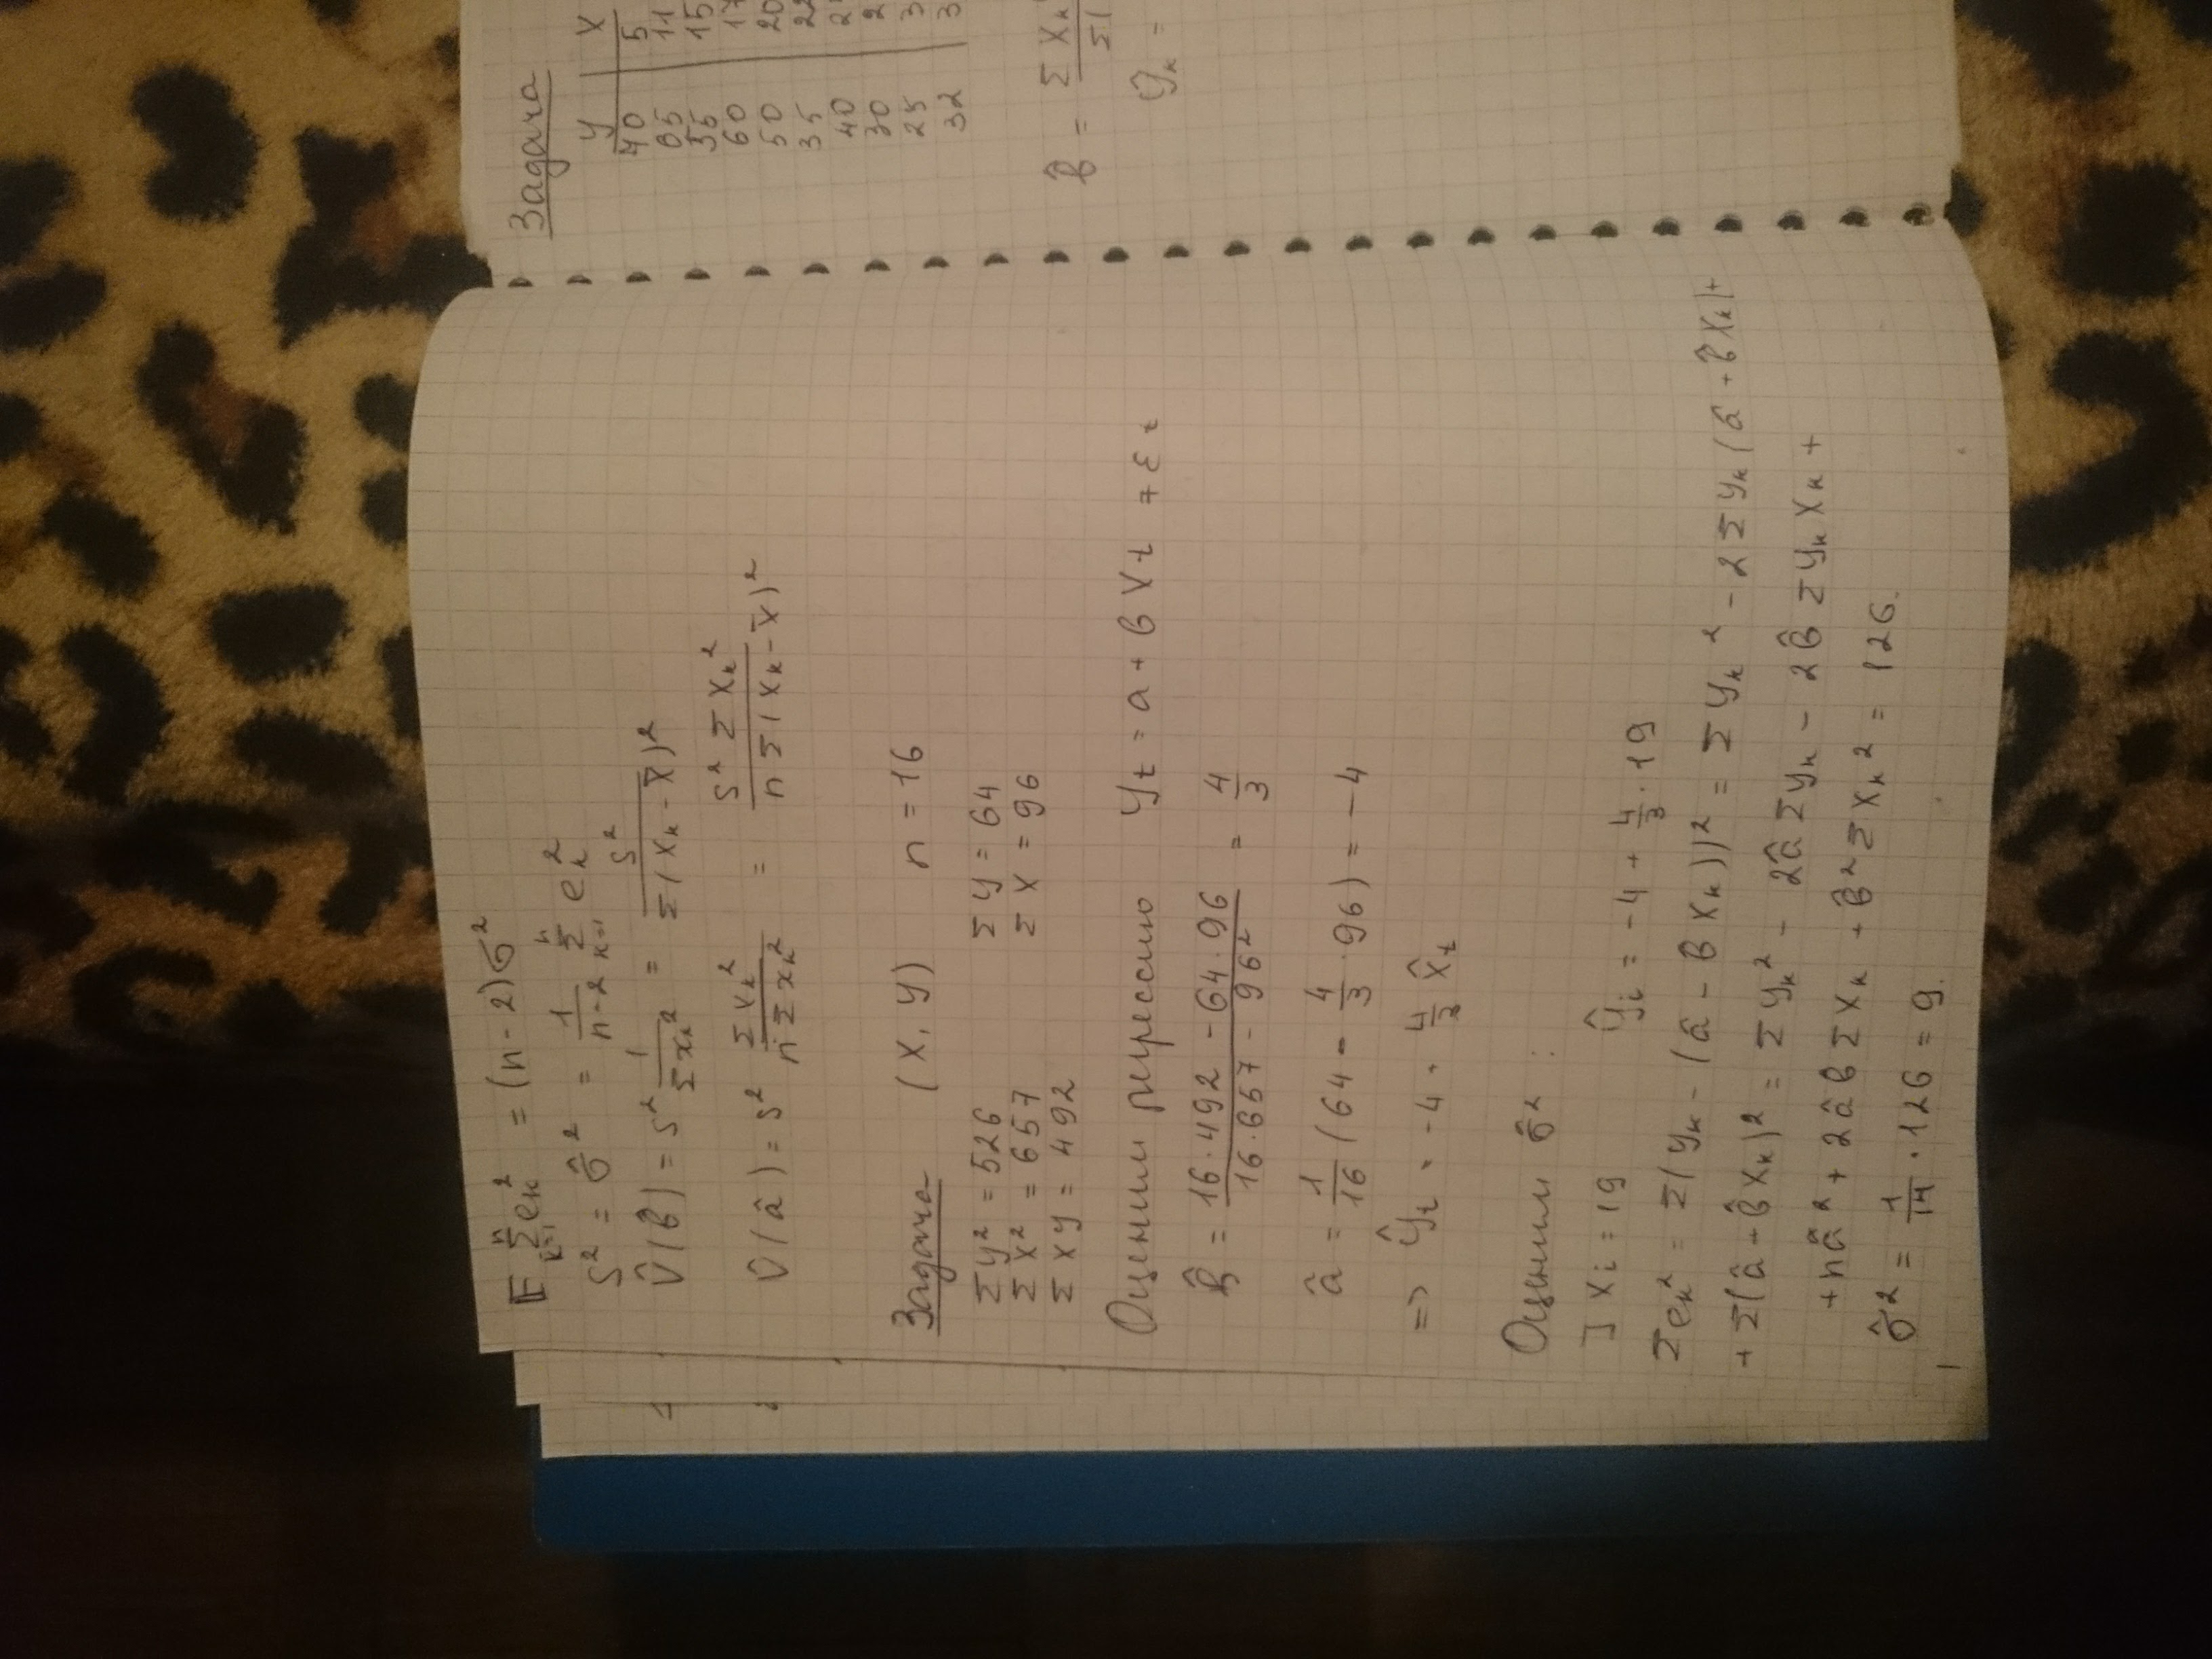 E Σ_{k=1}^{n} e_k² = (n-2)σ²
S² = σ̂² = 1/(n-2) Σ_{k=1}^{n} e_k²
V̂(b̂) = S² 1/(Σx_k²) = S²/(Σ(x_k - x̄)²)
V̂(â) = S² (ΣX_k²)/(nΣx_k²) = (S²ΣX_k²)/(nΣ(x_k - x̄)²)
Задача (X, Y) n = 16
Σy² = 526 Σy = 64
Σx² = 657 Σx = 96
Σxy = 492
Оценим регрессию y_t = a + bX_t + ε_t
b̂ = (16·492 - 64·96)/(16·657 - 96²) = 4/3
â = 1/16 (64 - 4/3·96) = -4
=> ŷ_t = -4 + 4/3 x̂_t
Оценим σ̂² :
] x_i = 19 ŷ_i = -4 + 4/3·19
Σe_k² = Σ(y_k - (â - bX_k))² = Σy_k² - 2Σy_k(â + b̂X_k)+
+ Σ(â + b̂X_k)² = Σy_k² - 2âΣy_k - 2b̂Σy_kX_k +
+ nâ² + 2âb̂ΣX_k + b̂²ΣX_k² = 126.
σ̂² = 1/14 · 126 = 9.
Задача
y X
40 5
35 11
35 15
60 17
50 20
35 22
40
30
25
32
b̂ = ΣX_k
ŷ_k =